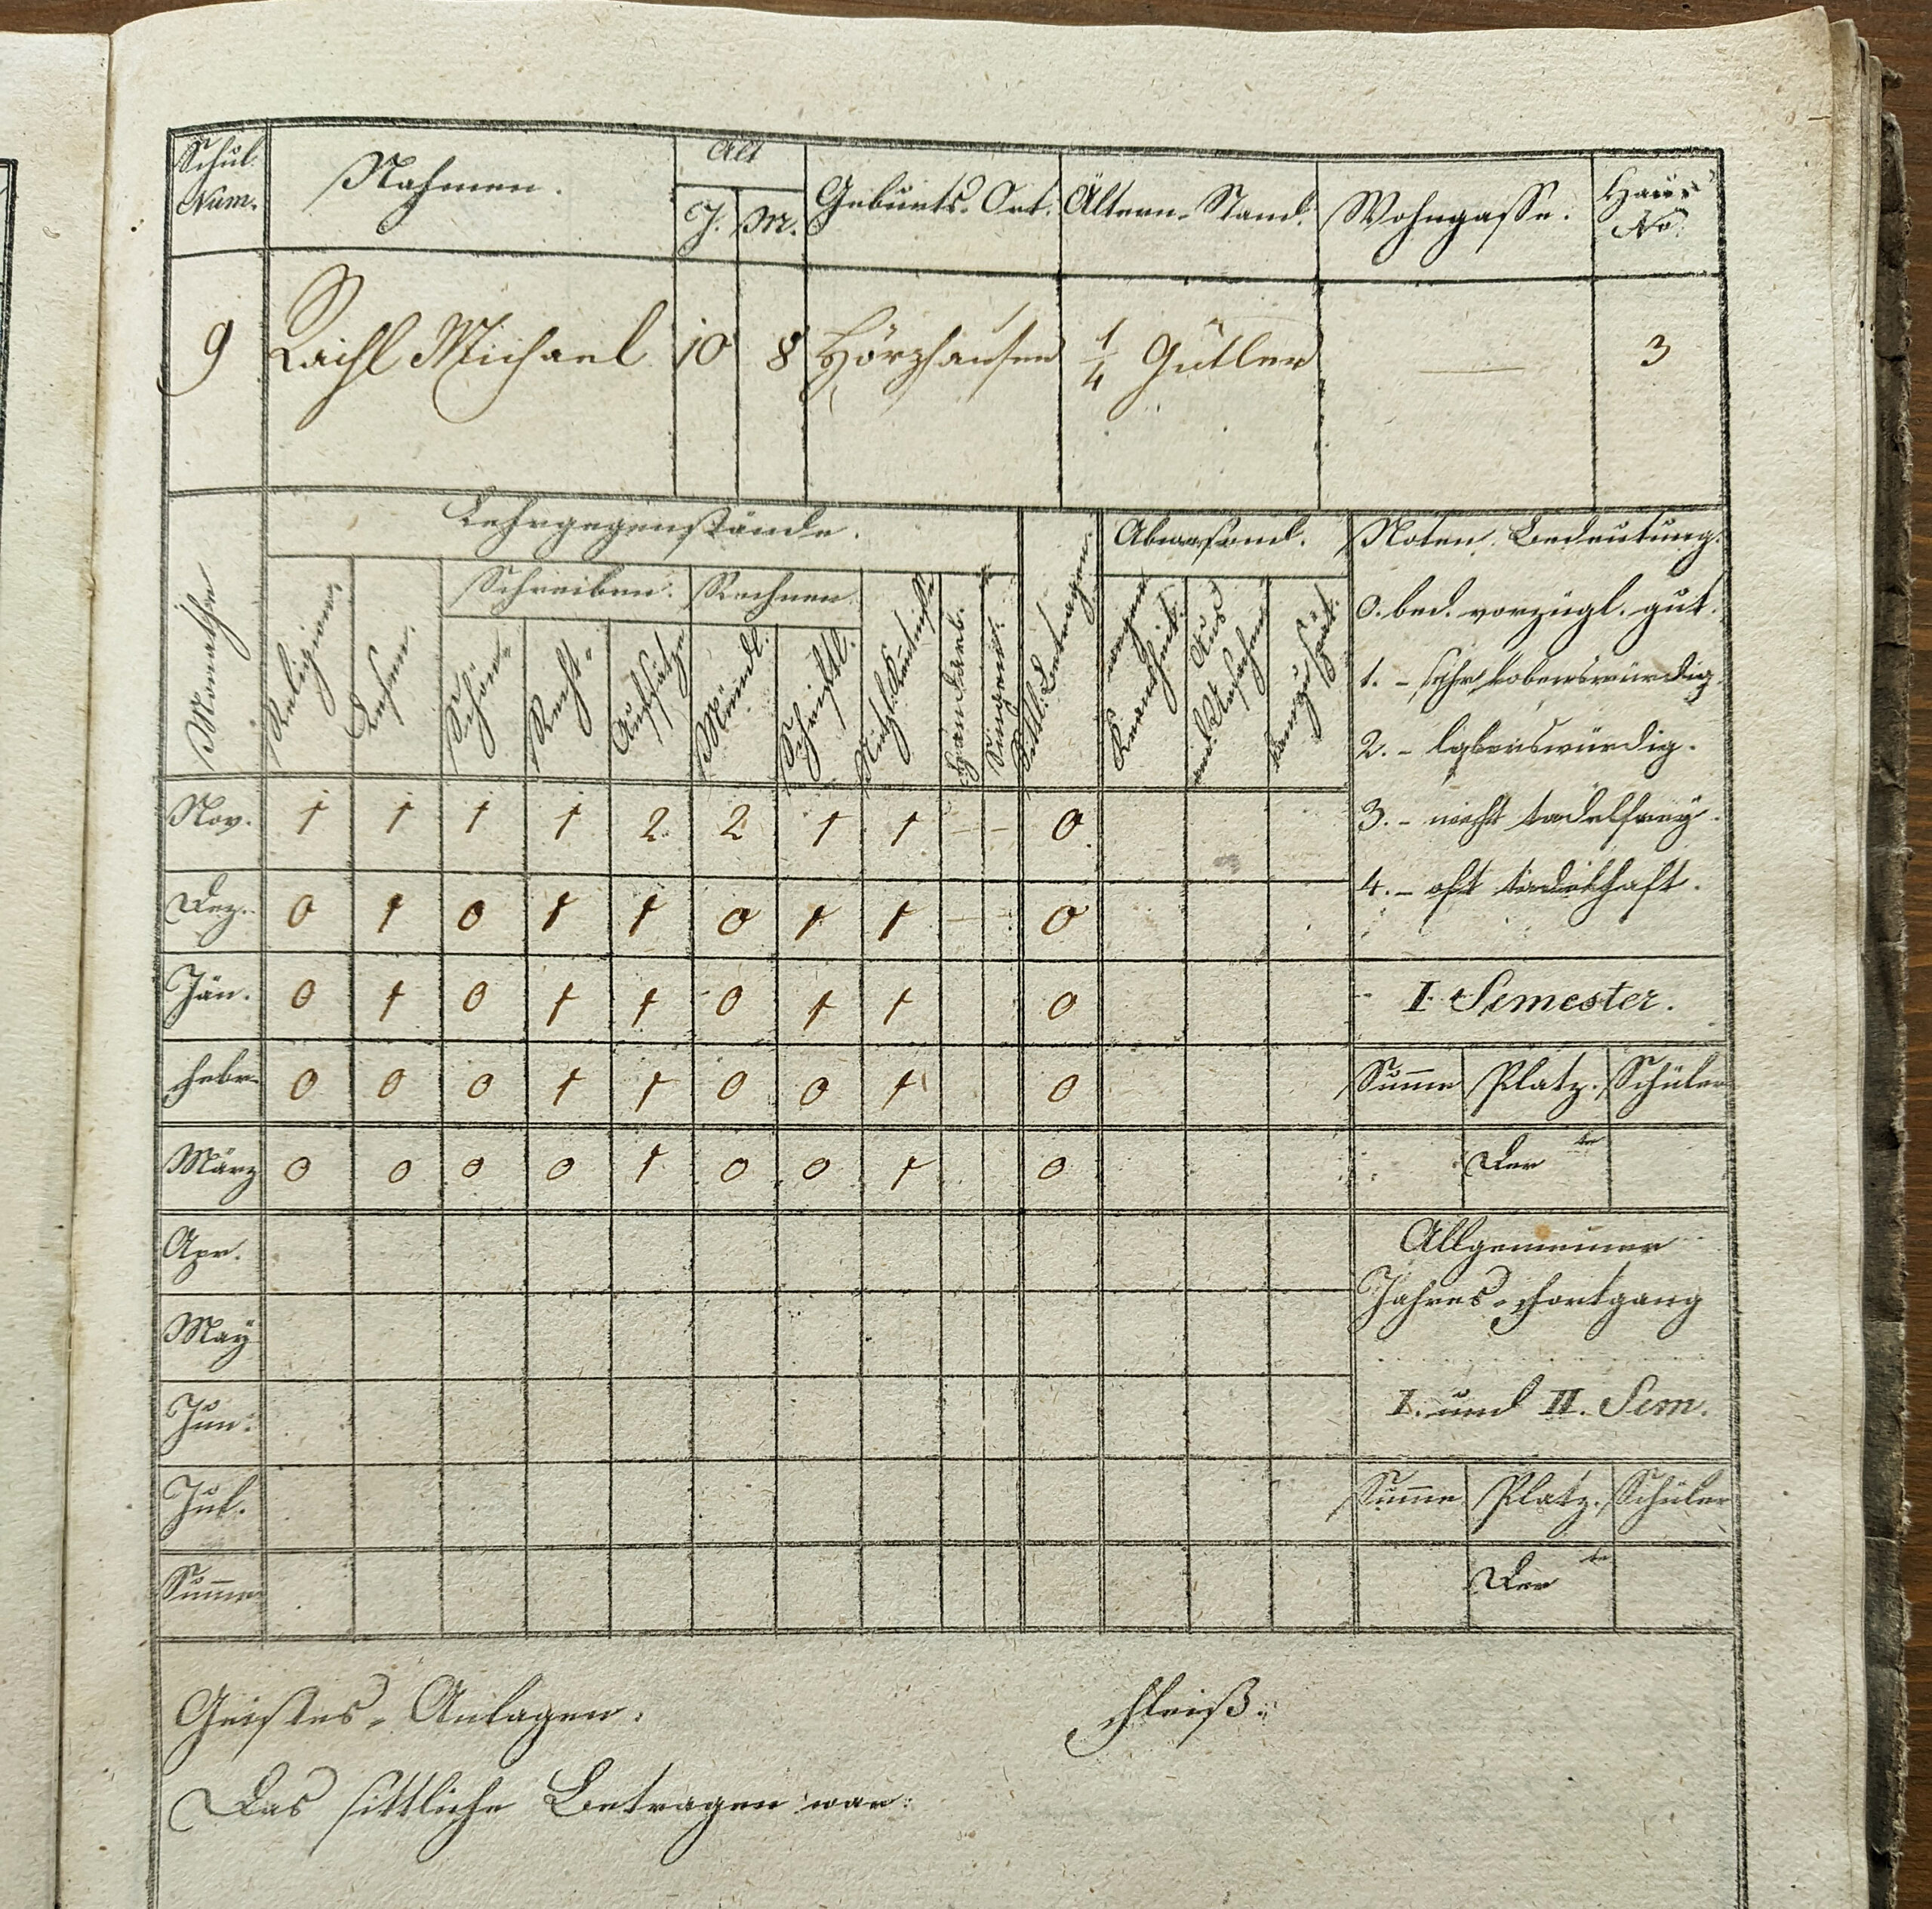 Schul Num.
Nahmen.
Alt
J. M.
Geburts-Ort.
Ältern-Stand.
Wohngasse.
Haus No.
9 Raichl Michael 10 8 Hörzhausen 1/4 Gütler — 3
Monathe
Lehrgegenstände.
Religion.
Lesen.
Schreiben.
Schön-
Recht-
Aufsätze
Rechnen
Mündl.
Schriftl.
Nützl. Kentniße
Handarb.
Singen.
Sittl. Betragen.
Abwesend.
wegen Krankheit.
Aus and. Ursachen
kam zu spät.
Noten. Bedeutung.
0. bed. vorzügl. gut.
1. - sehr lobenswürdig.
2. - lobenswürdig.
3. - nicht tadelfrey.
4. - oft tadelhaft.
Nov. 1 1 1 1 2 2 1 1 - - 0
Dez. 0 1 0 1 1 0 1 1 - - 0
Jän. 0 1 0 1 1 0 1 1 0
Febr. 0 0 0 1 1 0 0 1 0
März 0 0 0 0 1 0 0 1 0
Apr.
May
Jun.
Jul.
Summe
I. Semester.
Summe Platz. Schüler
Der te
Allgemeiner
Jahres-Fortgang
I. und II. Sem.
Summe Platz. Schüler
Der te
Geistes-Anlagen: Fleiß:
Das sittliche Betragen war: